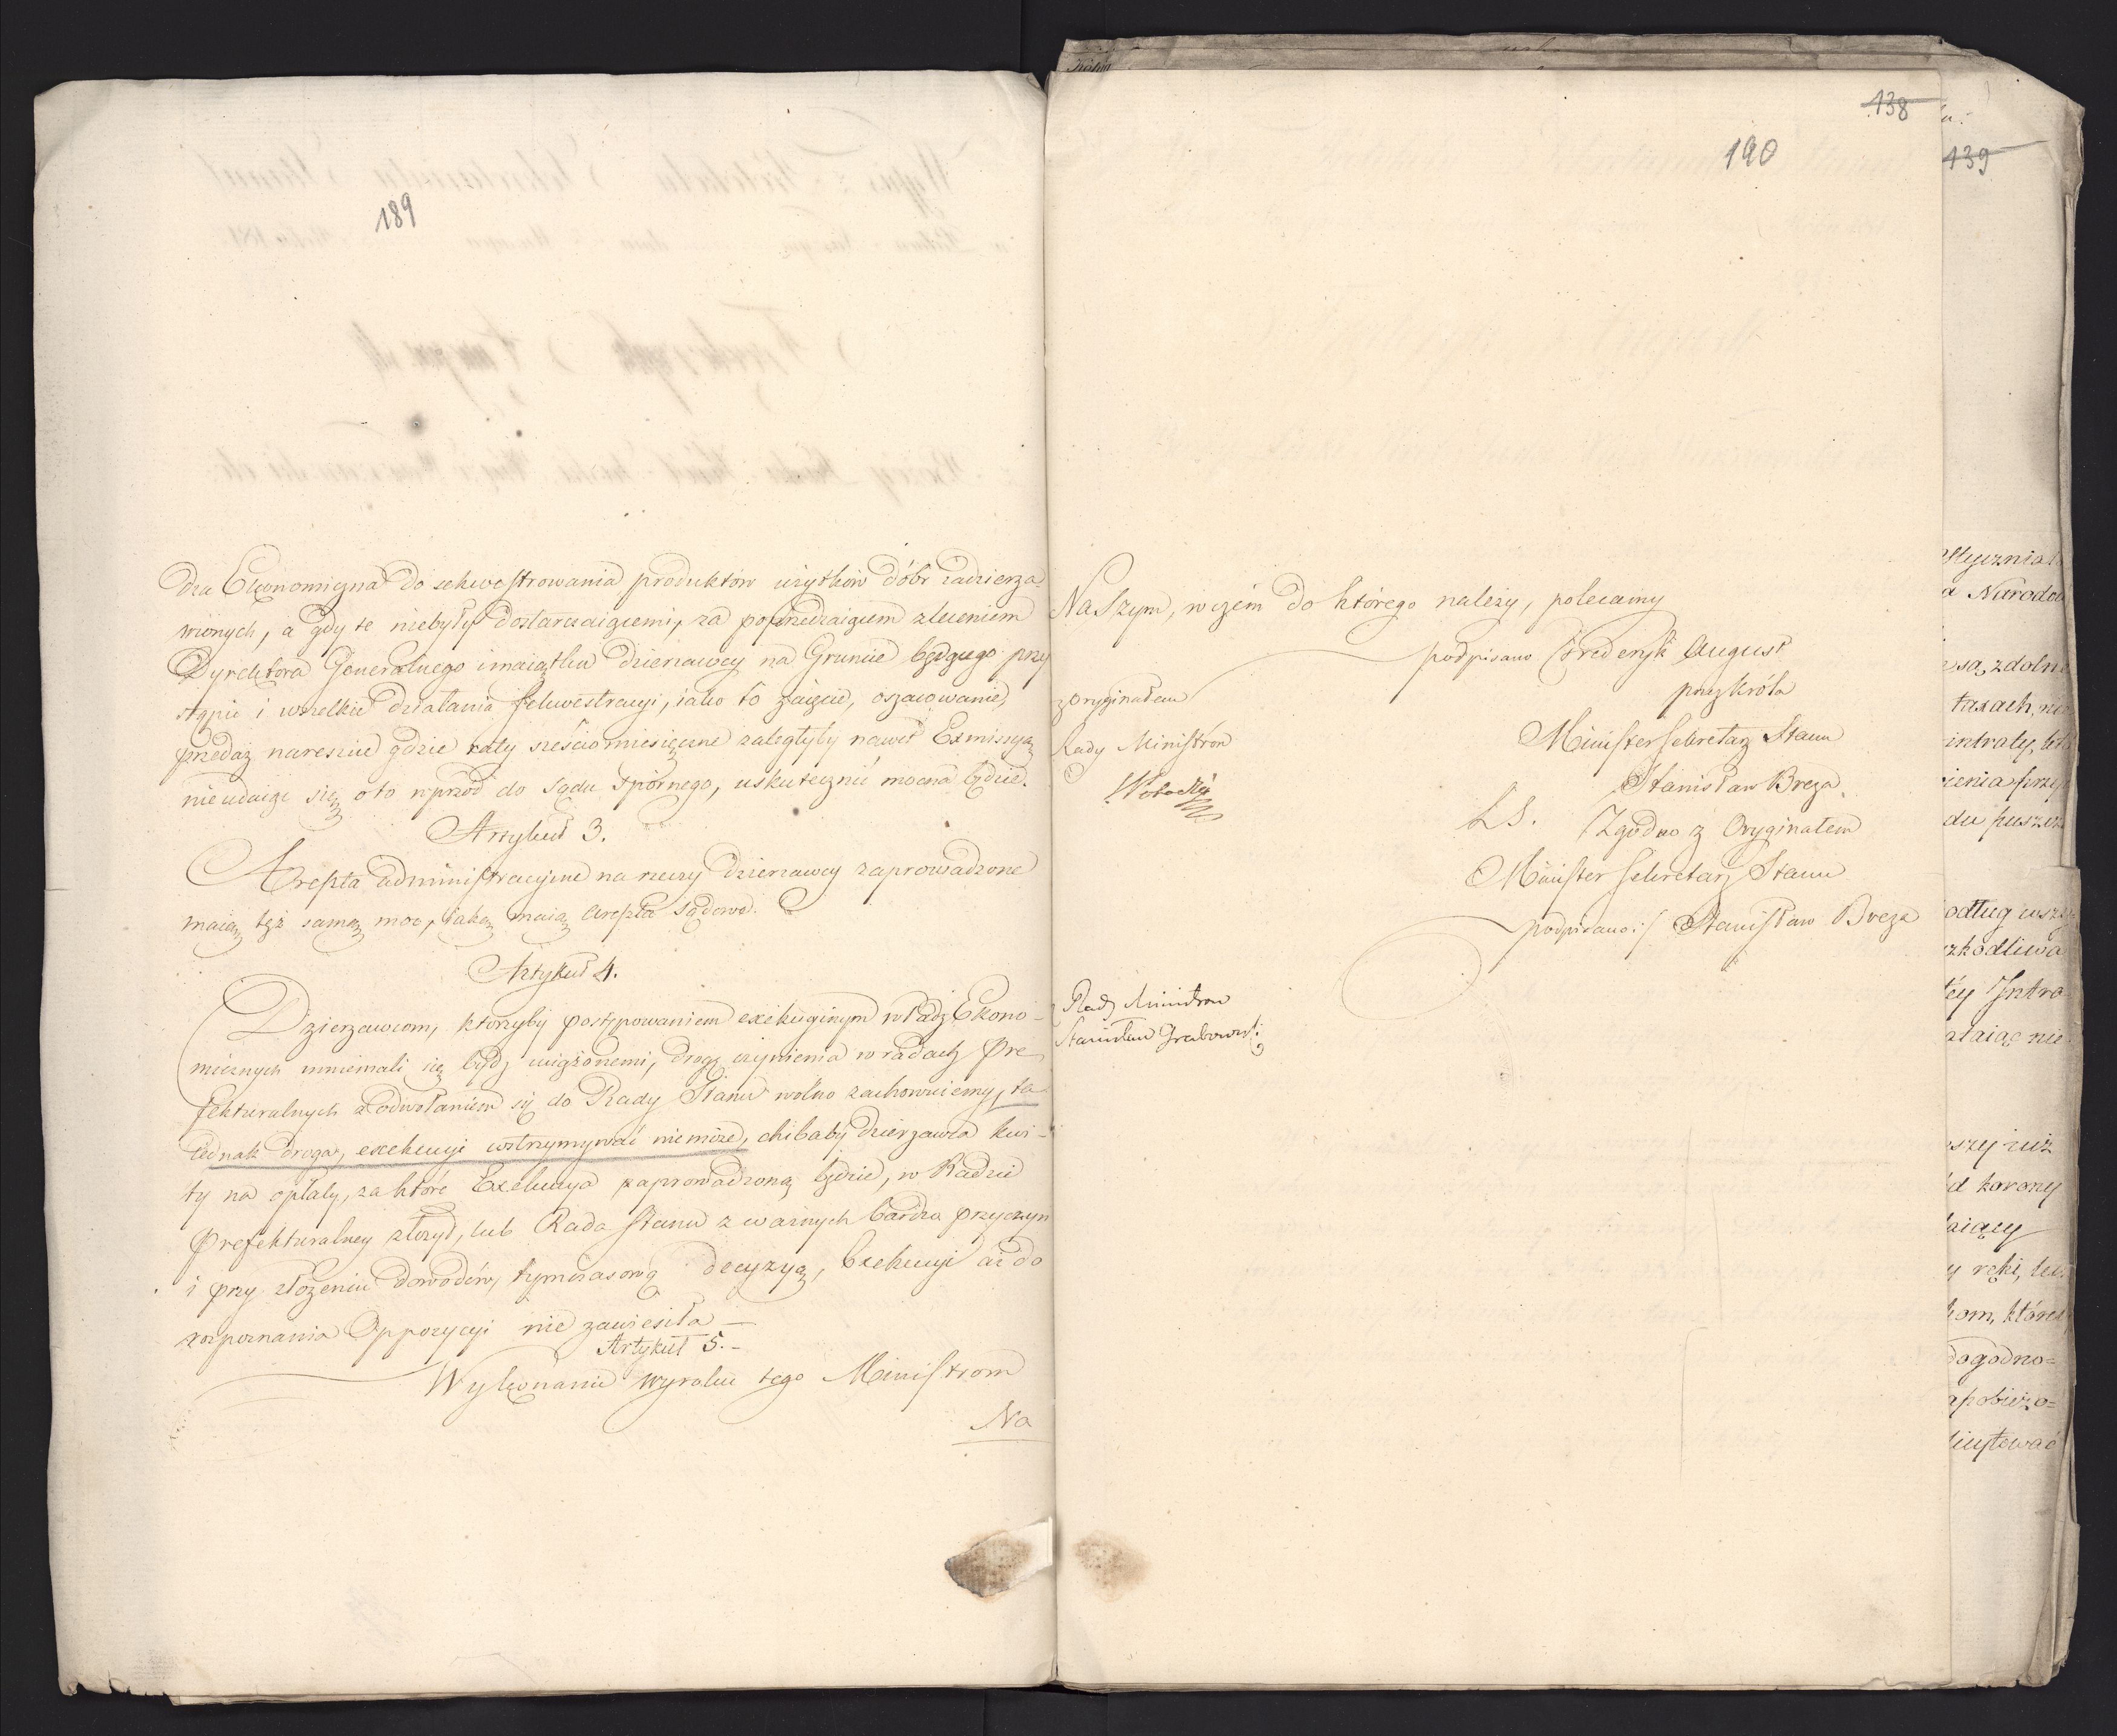 189
dza Ekonomiczna do sekwestrowania produktów użytków dóbr zadzierża-
wionych, a gdy te niebyły dostarczaiącemi, za poprzedzaiącem zleceniem
Dyrektora Generalnego i maiątku dzierzawcy na Gruncie będącego przy
stąpić i wszelkie działania sekwestracyi, iako to zaięcie, oszacowanie,
przedaż nareszcie gdzie raty sześciomiesięczne zaległyby nawet Exmissyą
nieudaiąc się o to wprzód do sądu spornego, uskutecznić mocna będzie.
Artykuł 3.
Areszta administracyine na rzeczy Dzierzawcy zaprowadzone
maią tęż samą moc, iaką maią areszta sądowe.
Artykuł 4.
Dzierzawcom, ktorzyby postępowaniem exekucyinym władz Ekono-
micznych mniemali się bydź uciążonemi, drogę czynienia w radach Pre-
fekturalnych z odwołaniem się do Rady Stanu wolno zachowuiemy, ta
iednak droga, exekucyi wstrzymywać niemoże, chibaby dzierzawca kwi-
ty na opłaty, za które Exekucya zaprowadzoną będzie, w Radzie
Prefekturalney złozył, lub Rada Stanu z ważnych bardzo przyczyn
i przy złożeniu dowodów, tymczasową decyzyą, Exekucyi aż do
rozpoznania Oppozycyi nie zawiesiła —
Artykuł 5.-
Wykonanie wyroku tego Ministrom
Na
138
190
Naszym, w czém do którego należy, polecamy
podpisano Frederyk August
przez króla
Minister Sekretarz Stanu
Stanisław Breza.
LS. Zgodno z Oryginałem
Minister Sekretarz Stanu
podpisano:/ Stanisław Breza
z oryginałem
Rady Ministrów
Rady Ministrow
Stanisław Grabowski
139
a Narodo
są, zdoln
taxach, ni
du puszcz
odług
szkodliwa
téy Intra
szej iuż
d korony
y ręki,
kom, które
dogodno=